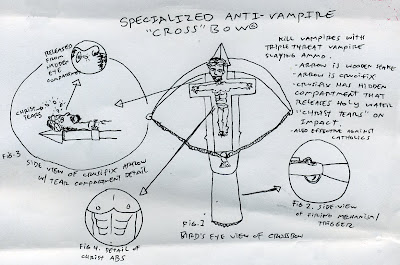 SPECIALIZED ANTI-VAMPIRE
"CROSS" BOW
RELEASED
FROM
HIDDEN
EYE
COMPARTMENT
CHRIST
TEARS
FIG. 3
SIDE VIEW OF CRUCIFIX ARROW
W/ TEAR COMPARTMENT DETAIL
KILL VAMPIRES WITH
TRIPLE THREAT VAMPIRE
SLAYING AMMO.
- ARROW IS WOODEN STAKE
- ARROW IS CRUCIFIX
- CRUCIFIX HAS HIDDEN
COMPARTMENT THAT
RELEASES HOLY WATER
"CHRIST TEARS" ON
IMPACT
- ALSO EFFECTIVE AGAINST
CATHOLICS
FIG 4. DETAIL OF
CHRIST ABS
FIG. 1
BIRD'S EYE VIEW OF CROSSBOW
FIG 2. SIDE VIEW
OF FIRING MECHANISM/
TRIGGER